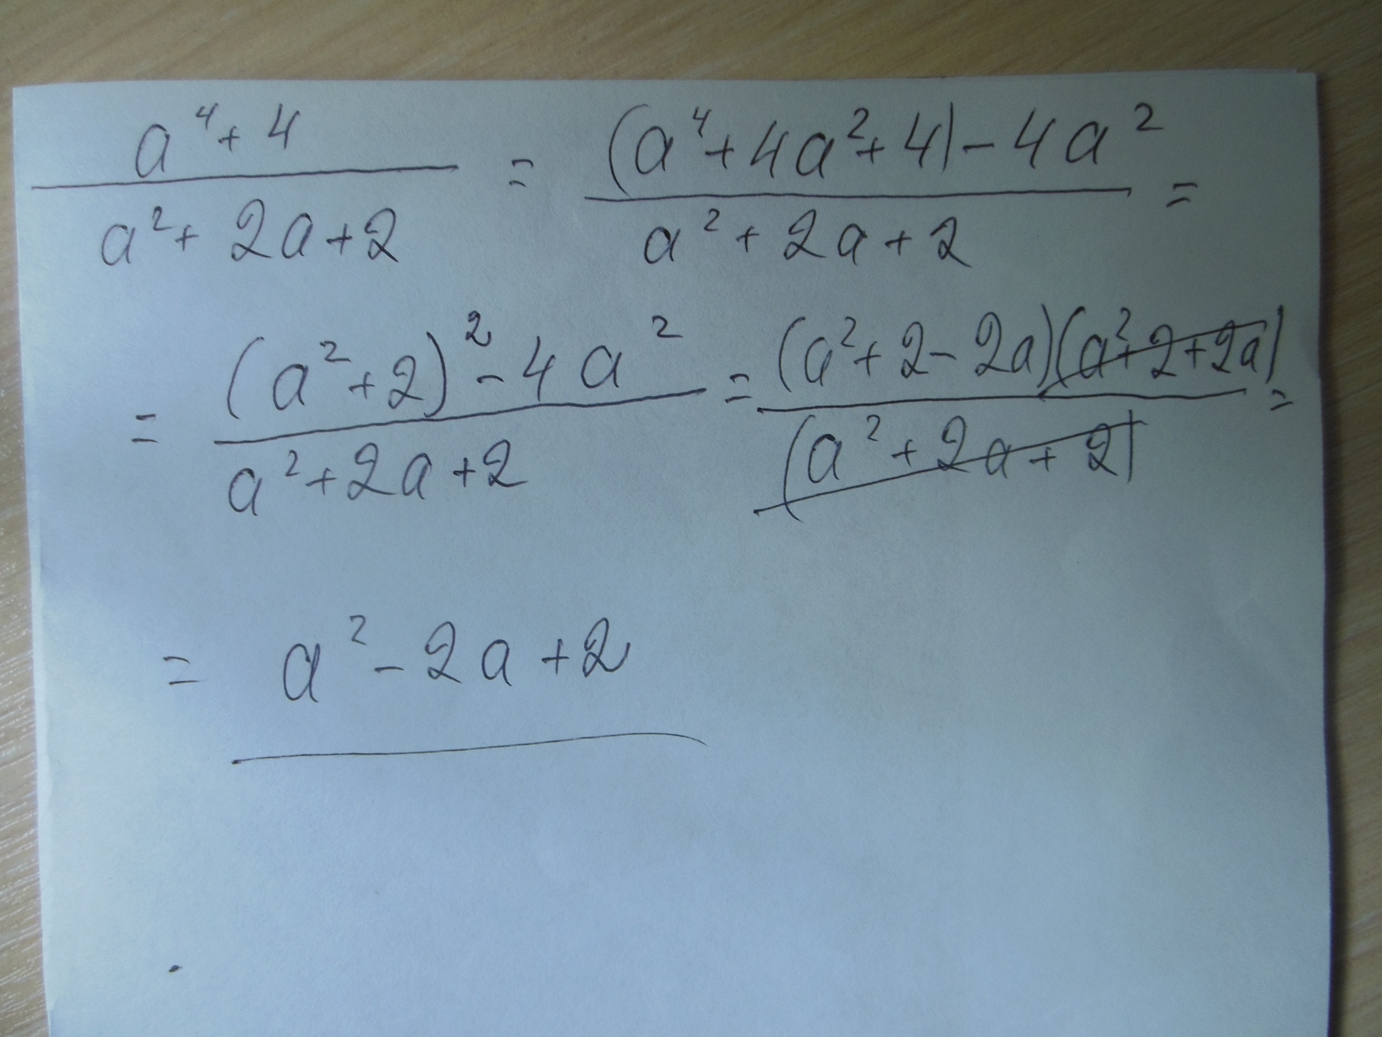 (a⁴ + 4)/(a² + 2a + 2) = ((a⁴ + 4a² + 4) - 4a²)/(a² + 2a + 2) =
= ((a² + 2)² - 4a²)/(a² + 2a + 2) = ((a² + 2 - 2a)(a² + 2 + 2a))/((a² + 2a + 2)) =
= a² - 2a + 2